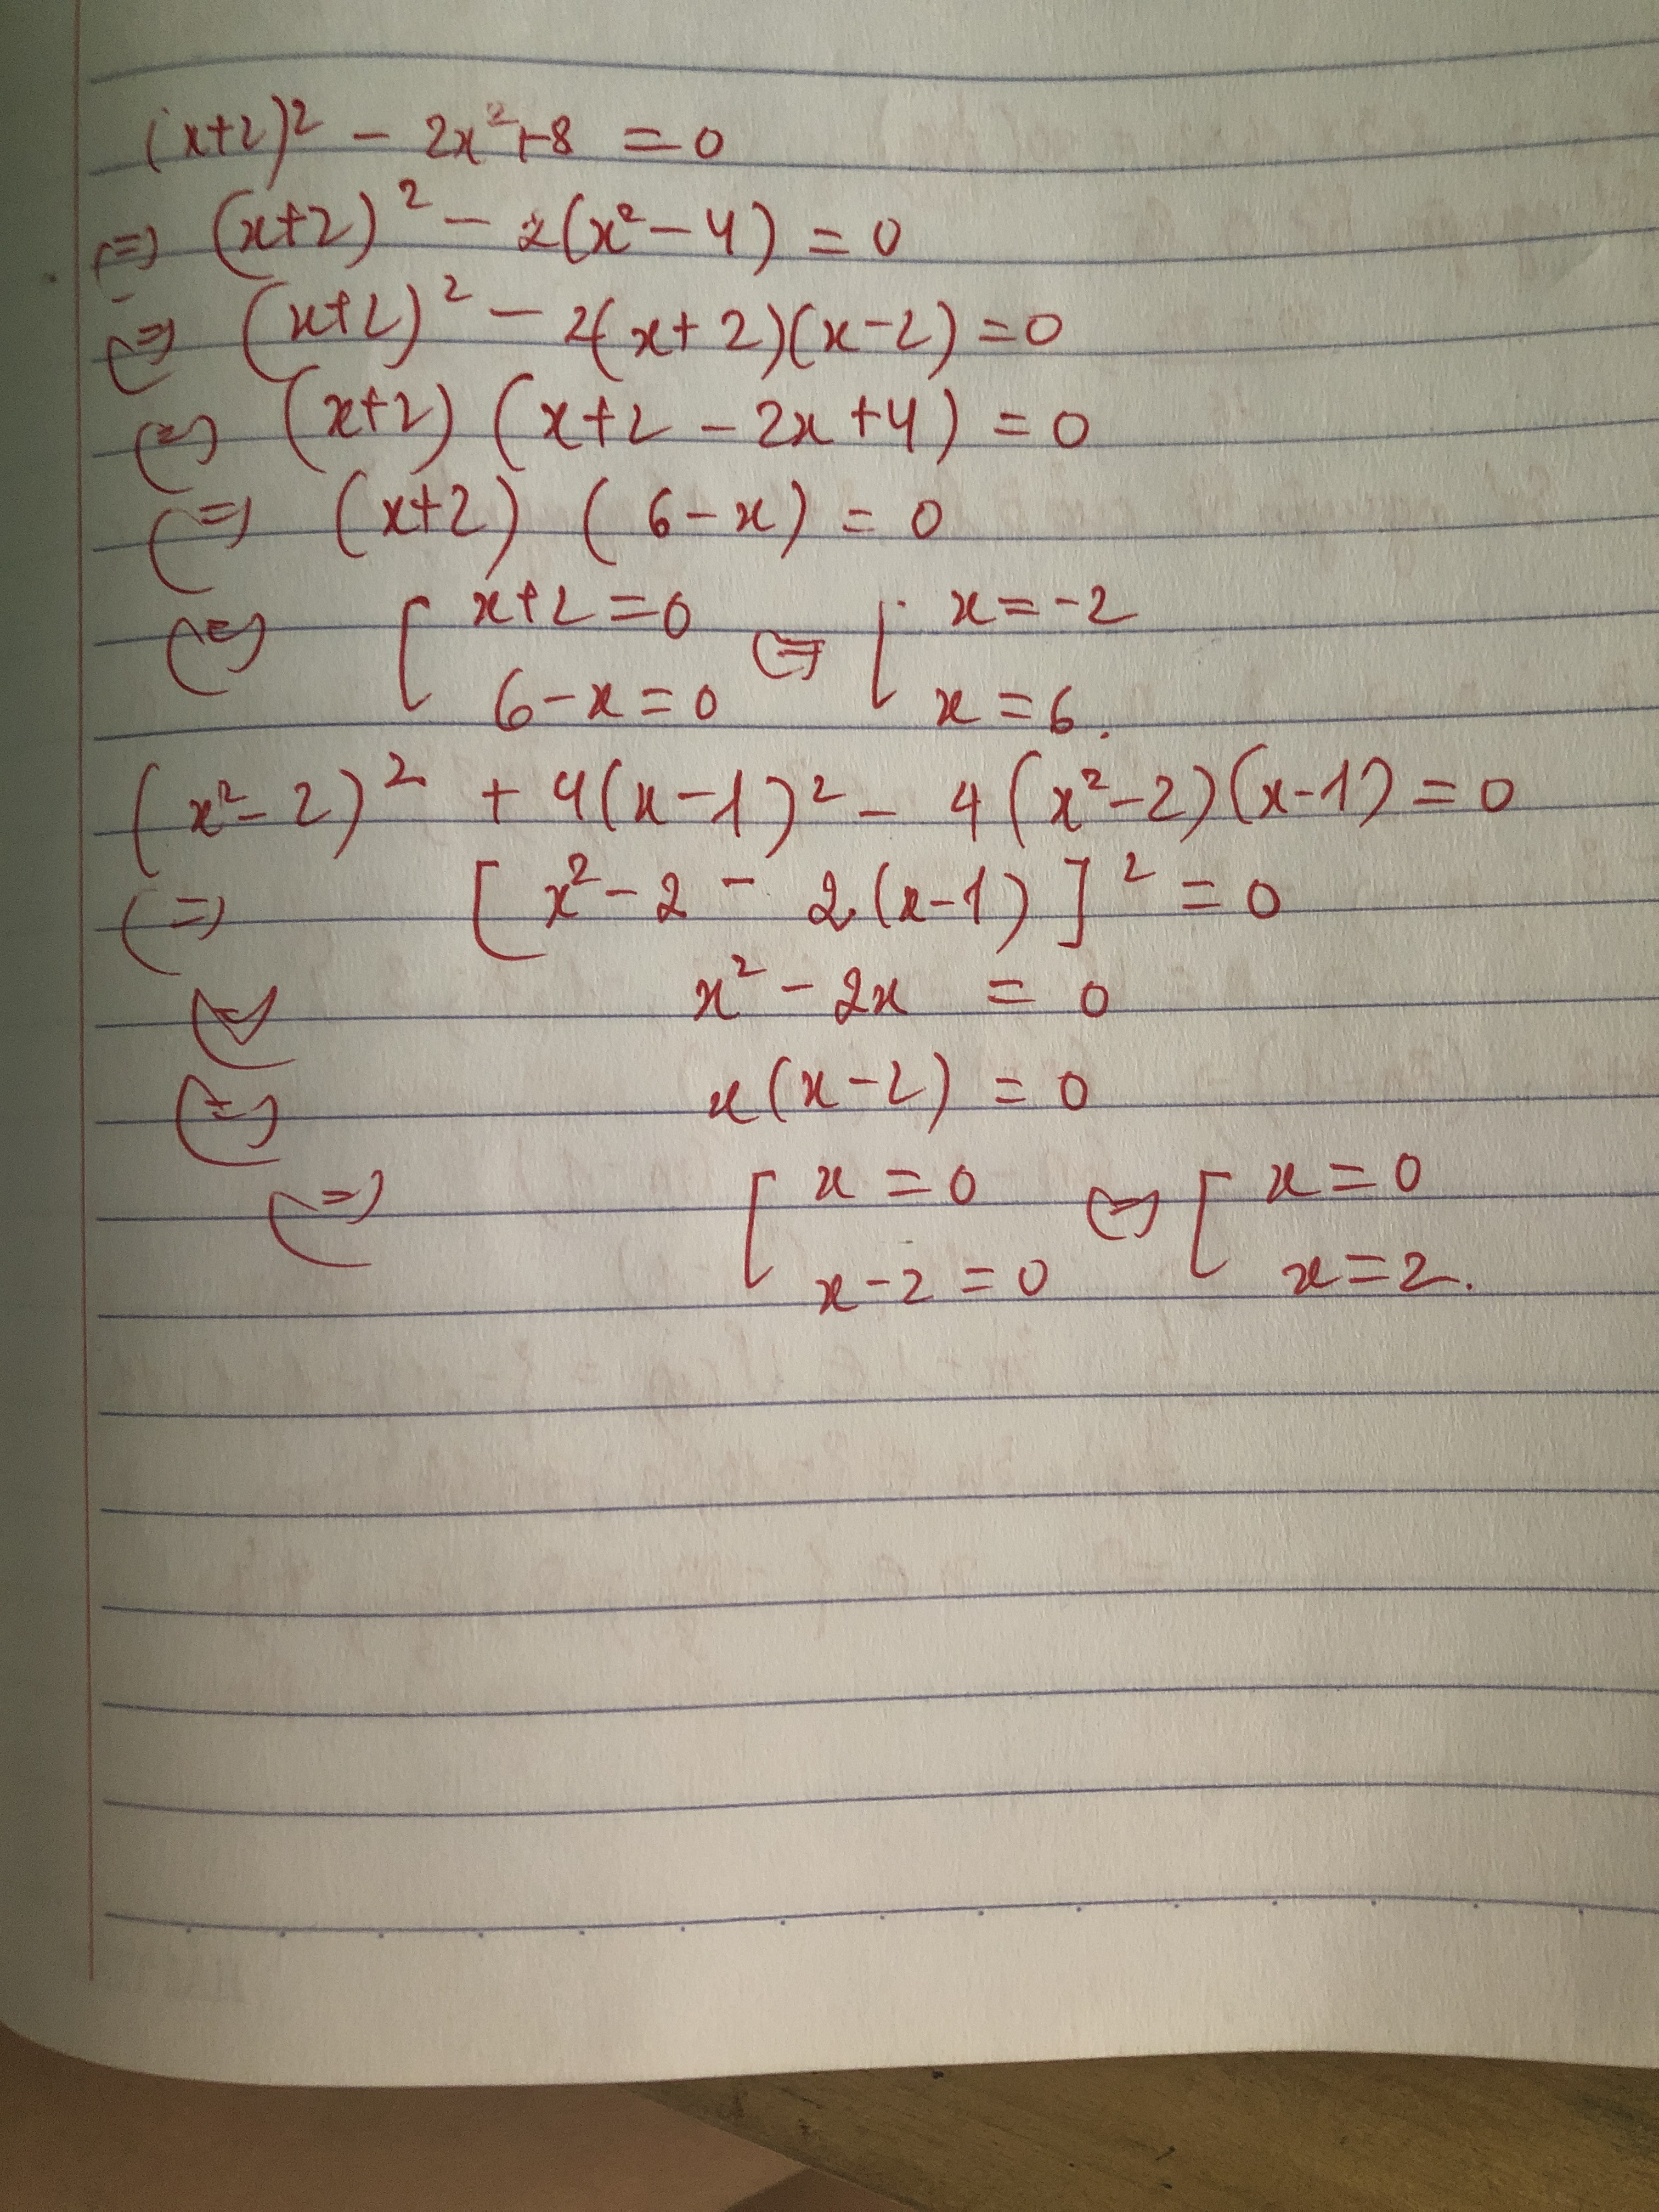 (x+2)² - 2x²+8 = 0
⇔ (x+2)² - 2(x²-4) = 0
⇔ (x+2)² - 2(x+2)(x-2) = 0
⇔ (x+2) (x+2 - 2x +4) = 0
⇔ (x+2) (6-x) = 0
⇔ [ x+2=0 ⇔ [ x=-2
6-x=0 x=6.
(x²-2)² + 4(x-1)² - 4(x²-2)(x-1) = 0
⇔ [x²-2 - 2(x-1)]² = 0
⇔ x² - 2x = 0
⇔ x(x-2) = 0
⇔ [ x=0 ⇔ [ x=0
x-2=0 x=2.